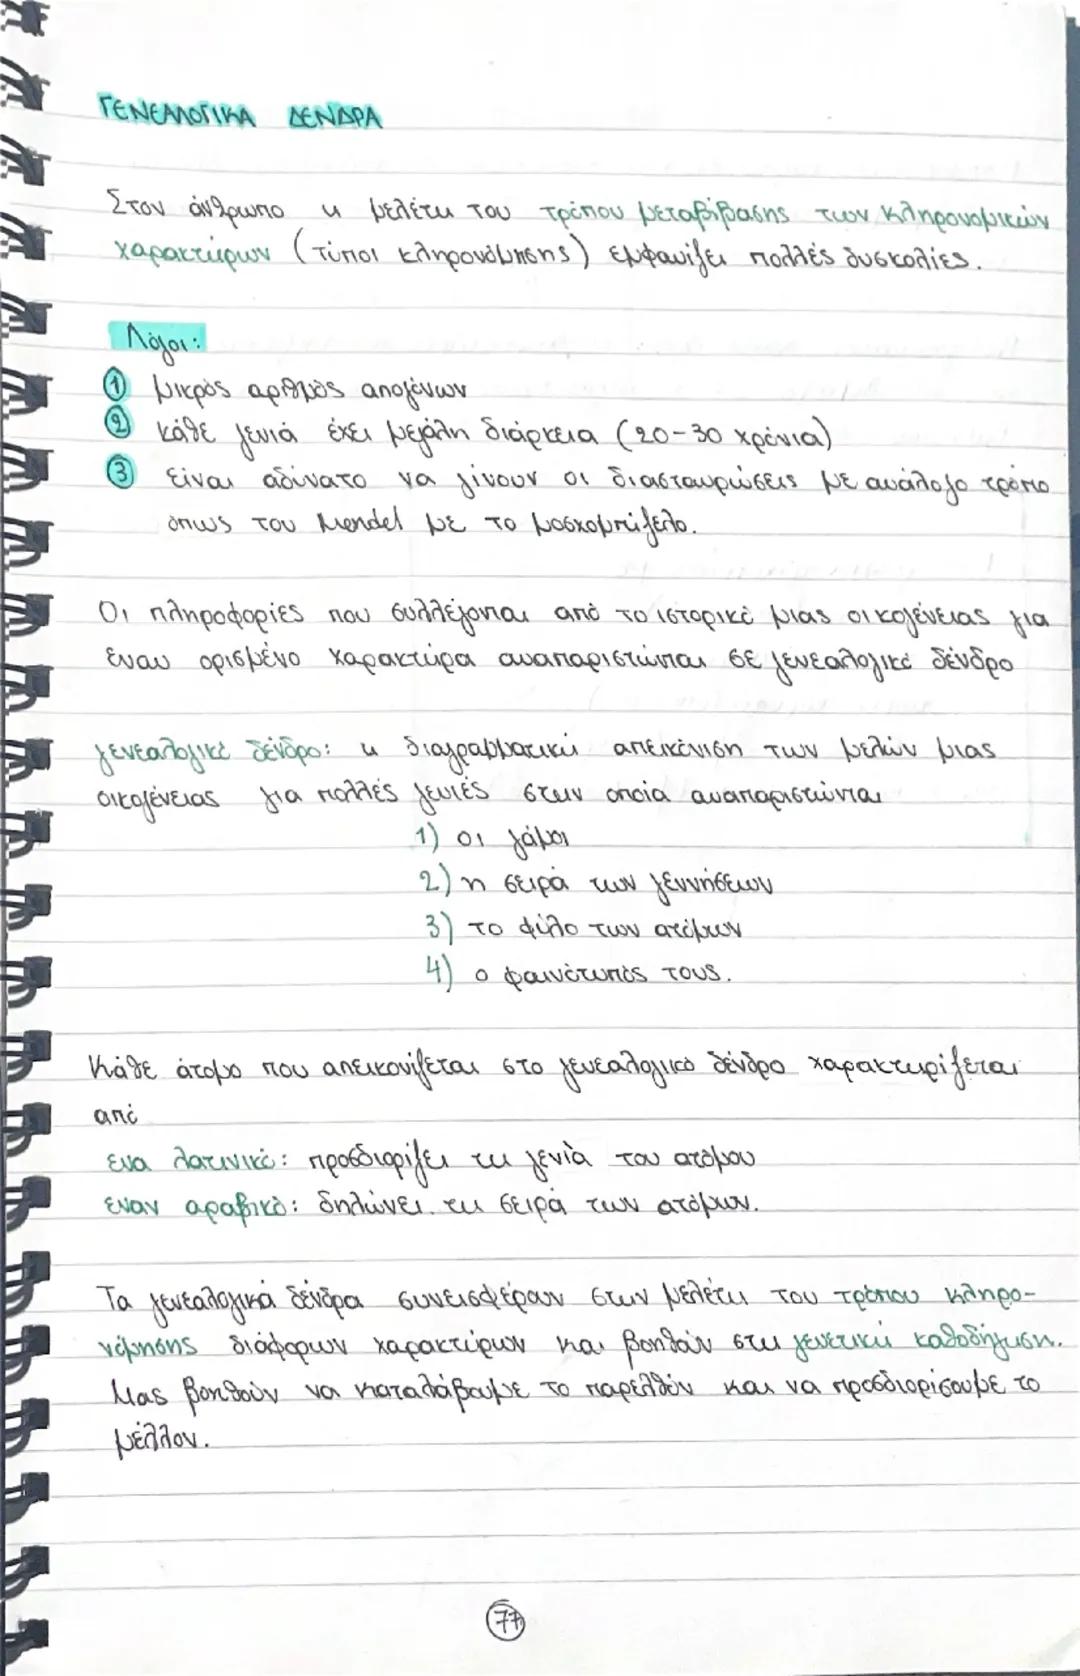 ΓΕΝΕΑΛΟΓΙΚΑ ΔΕΝΔΡΑ
Στον άνθρωπο η μελέτη του τρόπου μεταβίβασης των κληρονομικών
χαρακτήρων (τύποι κληρονόμησης) εμφανίζει πολλές δυσκολίες.
Λόγοι:
① μικρός αριθμός απογόνων
② κάθε γενιά έχει μεγάλη διάρκεια (20-30 χρόνια)
③ είναι αδύνατο να γίνουν οι διασταυρώσεις με ανάλογο τρόπο
όπως του Mendel με το μοσχομπίζελο.
Οι πληροφορίες που συλλέγονται από το ιστορικό μιας οικογένειας για
έναν ορισμένο χαρακτήρα αναπαριστώνται σε γενεαλογικό δένδρο
γενεαλογικό δένδρο: η διαγραμματική απεικόνιση των μελών μιας
οικογένειας για πολλές γενιές στην οποία αναπαριστώνται
1) οι γάμοι
2) η σειρά των γεννήσεων
3) το φύλο των ατόμων
4) ο φαινότυπός τους.
Κάθε άτομο που απεικονίζεται στο γενεαλογικό δένδρο χαρακτηρίζεται
από
ένα λατινικό: προσδιορίζει τη γενιά του ατόμου
έναν αραβικό: δηλώνει τη σειρά των ατόμων.
Τα γενεαλογικά δένδρα συνεισφέρουν στην μελέτη του τρόπου κληρο-
νόμησης διάφορων χαρακτήρων και βοηθάν στη γενετική καθοδήγηση.
Μας βοηθούν να καταλάβουμε το παρελθόν και να προσδιορίσουμε το
μέλλον.
77